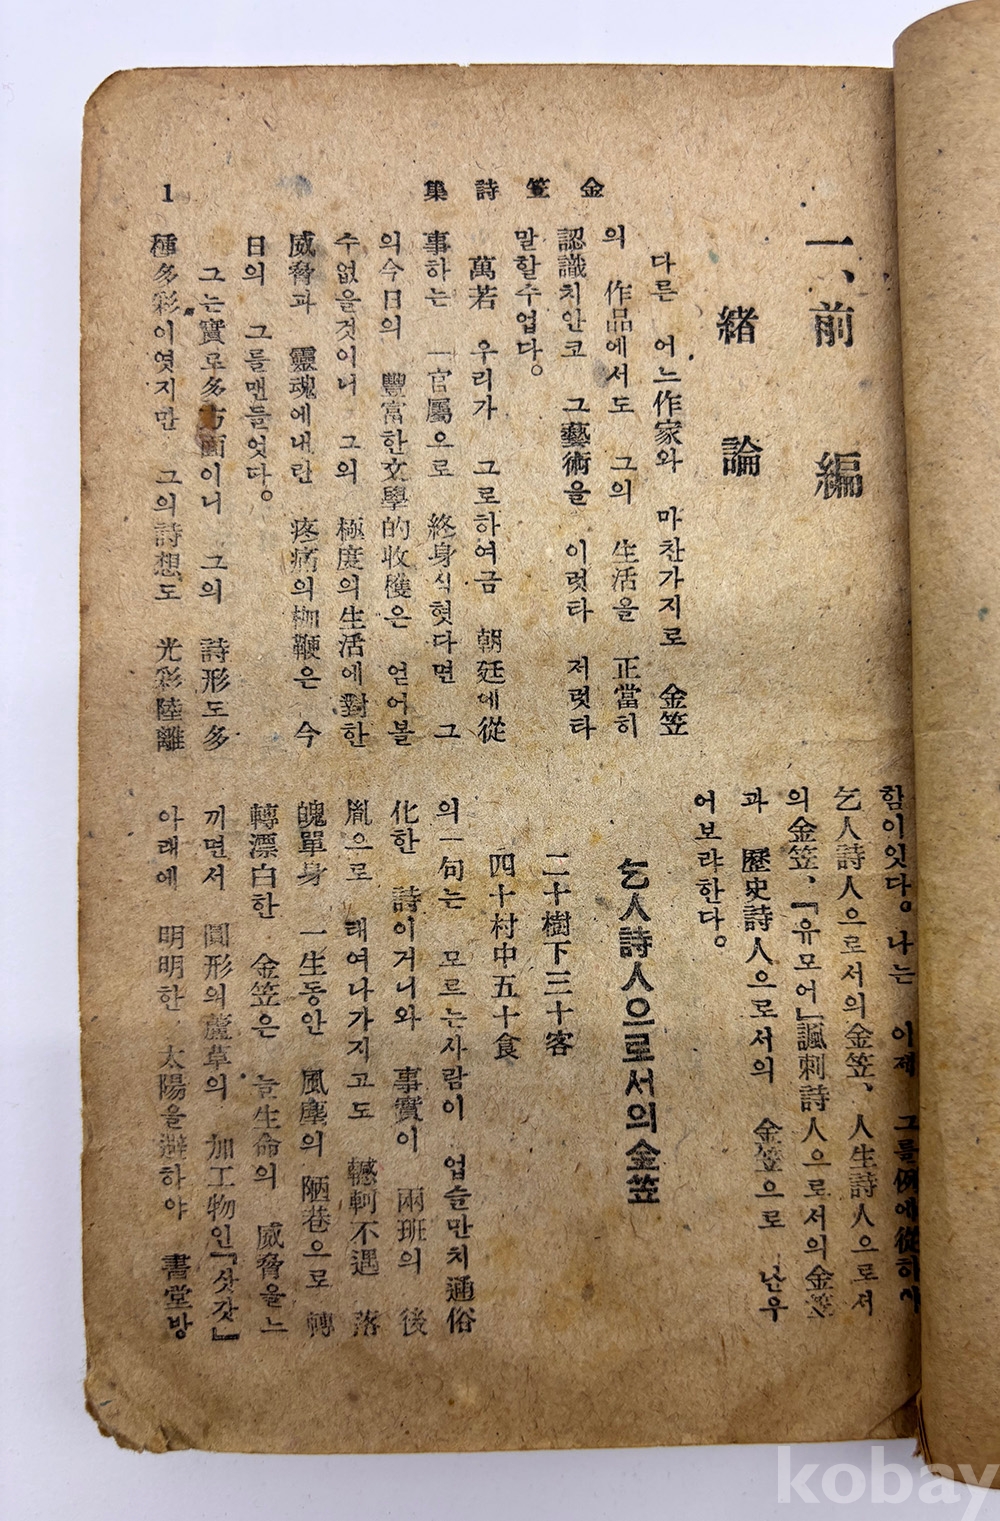 金笠詩集
1
一、前編
緒論
다른 어느作家와 마찬가지로 金笠
의 作品에서도 그의 生活을 正當히
認識치안코 그藝術을 이럿타 저럿타
말할수업다。
萬若 우리가 그로하여금 朝廷에從
事하는 一官屬으로 終身식혓다면 그
의今日의 豐富한文學的收穫은 얻어볼
수없을것이니 그의 極度의生活에對한
威脅과 靈魂에내란 疼痛의枷鞭은 今
日의 그를맨들엇다。
그는實로多方面이니 그의 詩形도多
種多彩이엿지만 그의詩想도 光彩陸離
함이잇다。나는 이제 그를例에從하사
乞人詩人으로서의金笠、人生詩人으로서
의金笠、『유모어』諷刺詩人으로서의金笠
과 歷史詩人으로서의 金笠으로 난우
어보랴한다。
乞人詩人으로서의金笠
二十樹下三十客
四十村中五十食
의一句는 모르는사람이 업슬만치通俗
化한 詩이거니와 事實이 兩班의 後
胤으로 태여나가지고도 轗軻不遇 落
魄單身 一生동안 風塵의陋巷으로 轉
轉漂白한 金笠은 늘生命의 威脅을느
끼면서 圓形의蘆草의 加工物인『삿갓』
아래에 明明한 太陽을避하야 書堂방
kobay